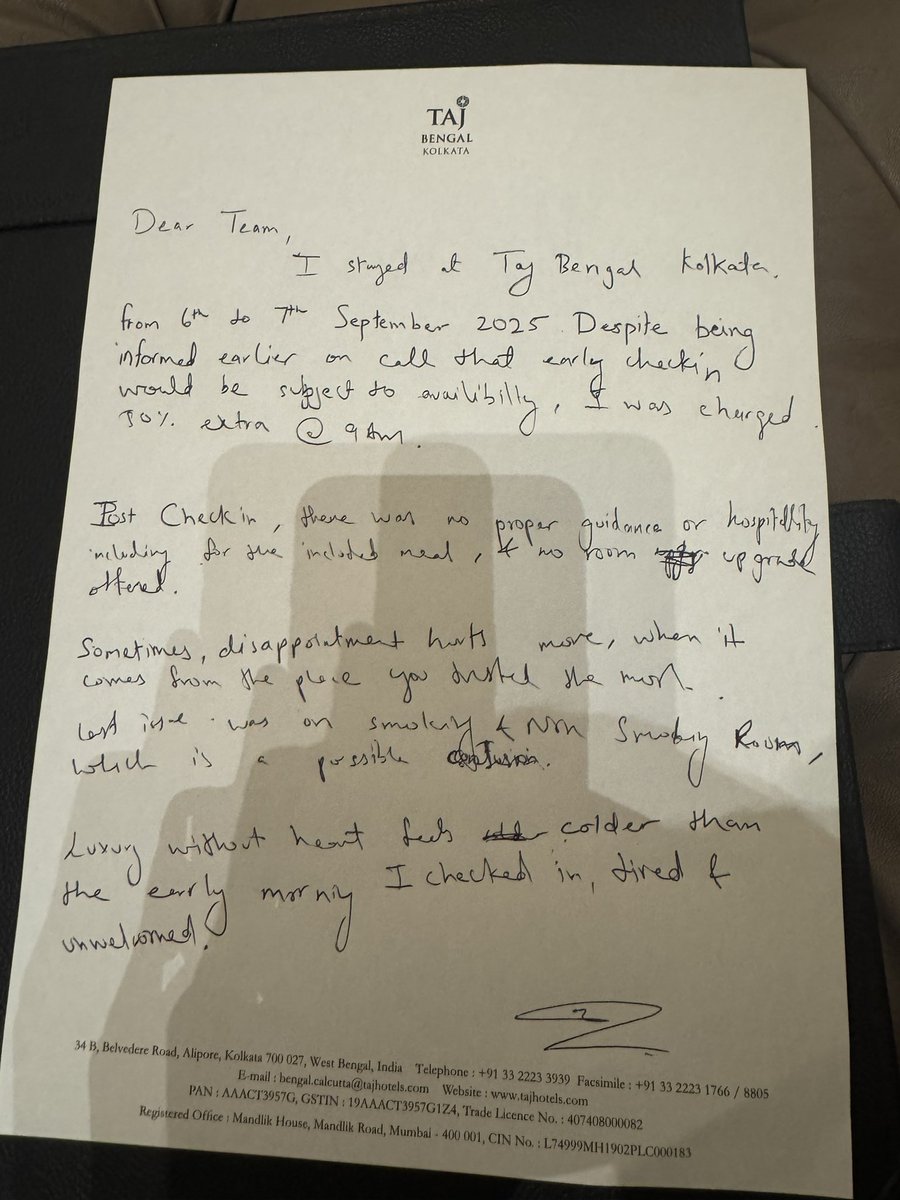 TAJ
BENGAL
KOLKATA
Dear Team,
I stayed at Taj Bengal Kolkata.
from 6th to 7th September 2025. Despite being
informed earlier on call that early checkin
would be subject to availibilly, I was charged
extra @ 9 AM.
Post Checkin, there was no proper guidance or hospitallity
including for the included meal, & no room upgrade
offered.
Sometimes, disappointment hurts more, when it
comes from the place you trusted the most.
Last issue was on smoking & Non Smoking Room,
which is a possible confusion.
Luxury without heart feels colder than
the early morning I checked in, tired &
unwelcomed.
34 B, Belvedere Road, Alipore, Kolkata 700 027, West Bengal, India Telephone : +91 33 2223 3939 Facsimile : +91 33 2223 1766 / 8805
E-mail : bengal.calcutta@tajhotels.com Website : www.tajhotels.com
PAN : AAACT3957G, GSTIN : 19AAACT3957G1Z4, Trade Licence No. : 407408000082
Registered Office : Mandlik House, Mandlik Road, Mumbai - 400 001, CIN No. : L74999MH1902PLC000183